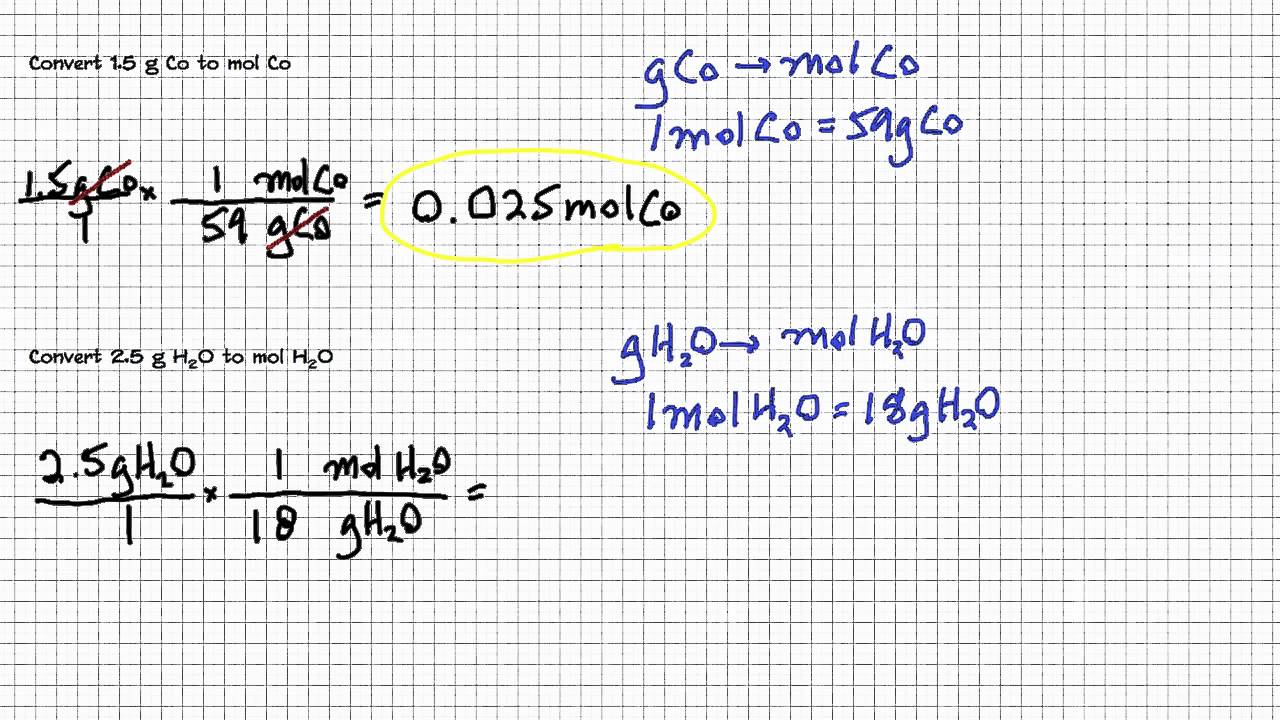 Convert 1.5 g Co to mol Co
gCo → molCo
1molCo = 59gCo
1.5gCo x 1 molCo = 0.025molCo
1 59 gCo
Convert 2.5 g H₂O to mol H₂O
gH₂O → molH₂O
1molH₂O = 18gH₂O
2.5gH₂O x 1 molH₂O =
1 18 gH₂O